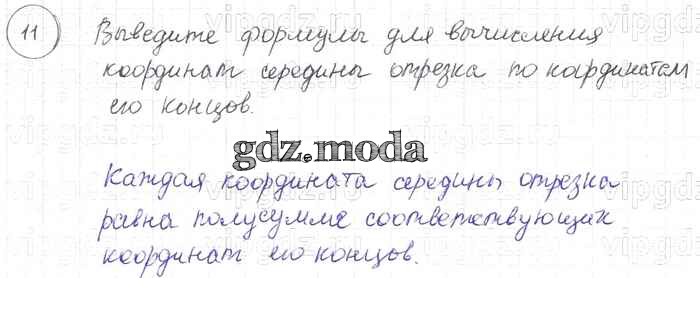 11 Выведите формулы для вычисления
координат середины отрезка по координатам
его концов.
gdz.moda
Каждая координата середины отрезка
равна полусумме соответствующих
координат его концов.